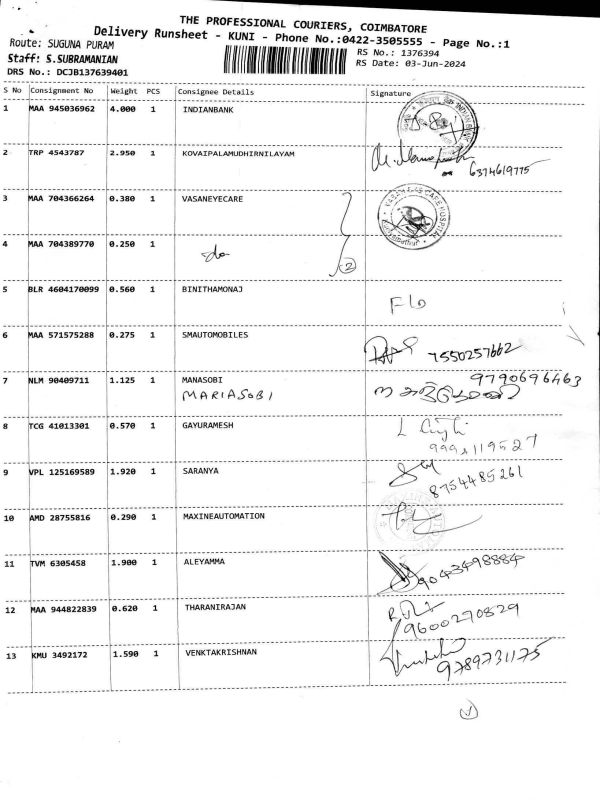 THE PROFESSIONAL COURIERS, COIMBATORE
Delivery Runsheet - KUNI - Phone No.:0422-3505555 - Page No.:1
Route: SUGUNA PURAM
RS No.: 1376394
Staff: S.SUBRAMANIAN
RS Date: 03-Jun-2024
DRS No.: DCJB137639401
S No Consignment No Weight PCS Consignee Details Signature
1 MAA 945036962 4.000 1 INDIANBANK
2 TRP 4543787 2.950 1 KOVAIPALAMUDHIRNILAYAM
6374619775
3 MAA 704366264 0.380 1 VASANEYECARE
4 MAA 704389770 0.250 1
do
2
5 BLR 4604170099 0.560 1 BINITHAMONAJ
F10
6 MAA 571575288 0.275 1 SMAUTOMOBILES
7550257662
7 NLM 90409711 1.125 1 MANASOBI
9790696463
MARIASOBI
8 TCG 41013301 0.570 1 GAYURAMESH
9 VPL 125169589 1.920 1 SARANYA
8754485261
10 AMD 28755816 0.290 1 MAXINEAUTOMATION
11 TVM 6305458 1.900 1 ALEYAMMA
9043498884
12 MAA 944822839 0.620 1 THARANIRAJAN
9600290829
13 KMU 3492172 1.590 1 VENKTAKRISHNAN
9789731175